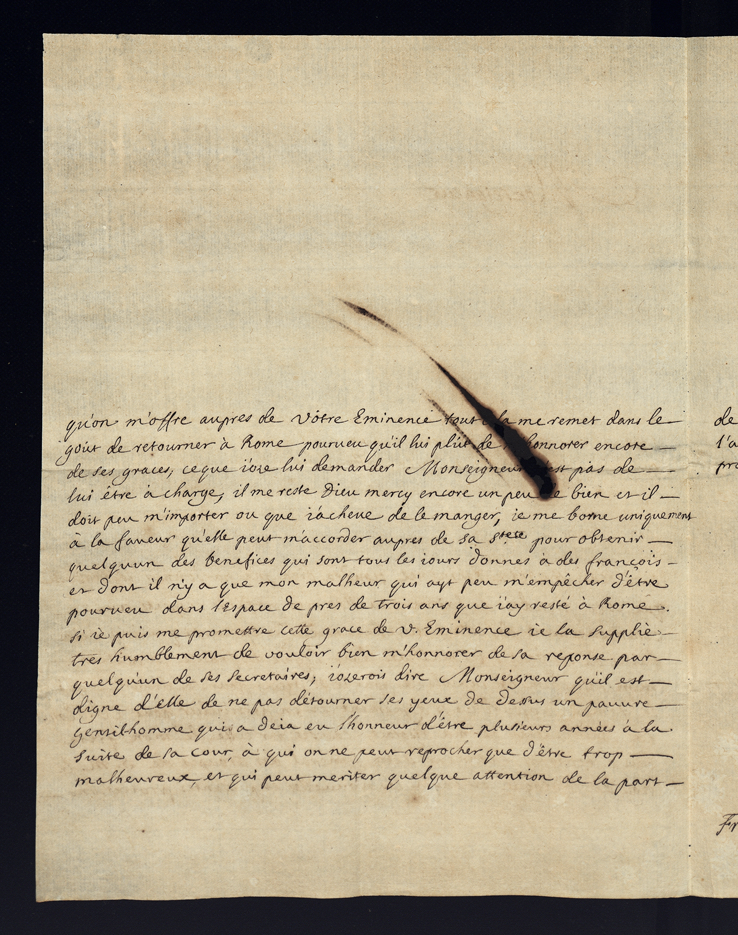 qu'on m'offre aupres de Vôtre Eminence tout cela me remet dans le
goût de retourner à Rome pourveu qu'il lui plût de honnorer encore
de ses graces, ce que i'ose lui demander Monseigneur est pas de
lui être à charge, il me reste Dieu mercy encore un peu de bien et il
doit peu m'importer ou que i'acheve de le manger, ie me borne uniquement
à la faveur qu'elle peut m'accorder aupres de sa S.teté pour obtenir
quelquun des benefices qui sont tous les iours donnés à des françois
et dont il n'y a que mon malheur qui ayt peu m'empêcher d'être
pourveu dans l'espace de pres de trois ans que i'ay resté à Rome.
si ie puis me promettre cette grace de V. Eminence ie la supplie
tres humblement de vouloir bien m'honnorer de sa reponse par
quelqu'un de ses secretaires, i'oserois dire Monseigneur qu'il est
digne d'elle de ne pas détourner ses yeux de dessus un pauvre
gentilhomme qui a deia eu lhonneur d'être plusieurs années à la
suite de sa cour, à qui on ne peut reprocher que d'être trop
malheureux, et qui peut meriter quelque attention de la part
de
l'a
pro
Fr